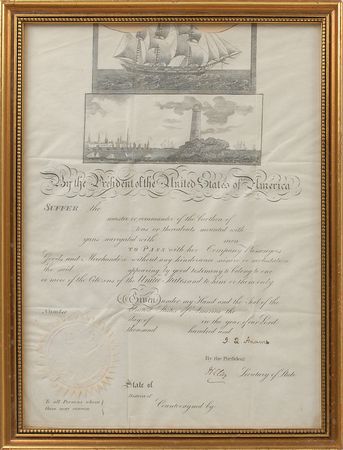 By the President of the United States of America
SUFFER the
master or commander of the burthen of
tons or thereabouts mounted with
guns navigated with men
TO PASS with her Company Passengers
Goods and Merchandize without any hinderance seizure or molestation
the said appearing by good testimony to belong to one
or more of the Citizens of the United States and to him or them only
Given under my Hand and the Seal of the
United States of America the
Day of in the year of our Lord
thousand hundred and
Number
J. Q. Adams
By the President
H Clay Secretary of State
State of
District of
Countersigned by
To all Persons whom
these may concern